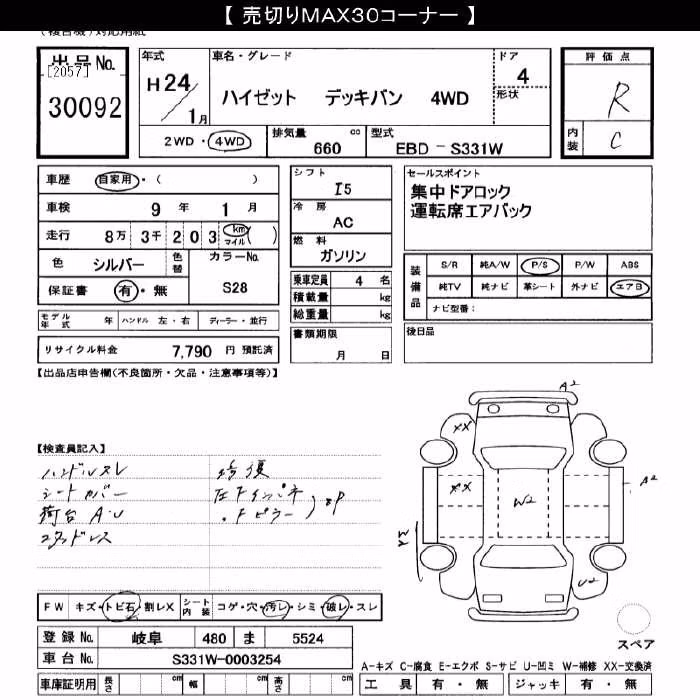 【 売切りMAX30コーナー 】
(複合機)対応用紙
出品No.
[2057]
30092
年式
H24/1月
車名・グレード
ハイゼット デッキバン 4WD
ドア
4
形状
評価点
R
内装
C
2WD・4WD
排気量 cc
660
型式
EBD-S331W
車歴 自家用・( )
車検 9年 1月
走行 8万 3千 2 0 3 km マイル( )
色 シルバー 色替 カラーNo.
保証書 有・無 S28
シフト
I5
冷房
AC
燃料
ガソリン
乗車定員 4 名
積載量 kg
総重量 kg
書類期限
月 日
セールスポイント
集中ドアロック
運転席エアバック
装備品
S/R 純A/W P/S P/W ABS
純TV 純ナビ 革シート 外ナビ エアB
ナビ型番:
後日品
モデル年式 年 ハンドル 左・右 ディーラー・並行
リサイクル料金 7,790 円 預託済
【出品店申告欄(不良箇所・欠品・注意事項等)】
【検査員記入】
ハンドルスレ
シートカバー
荷台 A・U
スタッドレス
修復
左Fインパネ
・Fピラー
A2
XX
XX
W2
A2
YX
U2
スペア
FW キズ・トビ石・割レX シート内装 コゲ・穴・汚レ・シミ・破レ・スレ
登録No. 岐阜 480 ま 5524
車台No. S331W-0003254
A-キズ C-腐食 E-エクボ S-サビ U-凹ミ W-補修 XX-交換済
車庫証明用 長さ cm 幅 cm 高さ cm
工具 有・無 ジャッキ 有・無